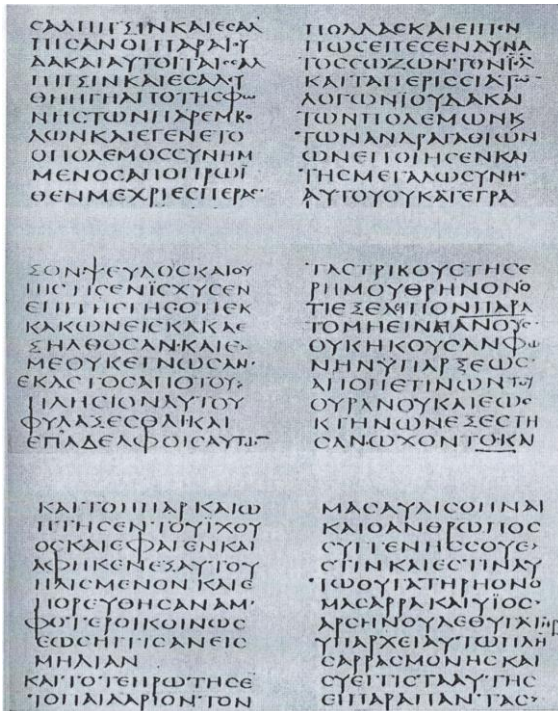 ϹΑΛΠΙΓΞΙΝΚΑΙΕϹΑΛ
ΠΙϹΑΝΟΙΠΑΡΑΙΟΥ
ΔΑΚΑΙΑΥΤΟΙΤΑΙϹϹΑΛ
ΠΙΓΞΙΝΚΑΙΕϹΑΛΕΥ
ΘΗΗΓΗΑΠΟΤΗϹΦΩ
ΝΗϹΤΩΝΠΑΡΕΜΒΟ
ΛΩΝΚΑΙΕΓΕΝΕΤΟ
ΟΠΟΛΕΜΟϹϹΥΝΗΜ
ΜΕΝΟϹΑΠΟΠΡΩΪ
ΘΕΝΜΕΧΡΙΕϹΠΕΡΑϹ
ΠΟΛΛΑϹΚΑΙΕΙΠΟΝ
ΠΩϹΕΠΕϹΕΝΔΥΝΑ
ΤΟϹϹΩΖΩΝΤΟΝΙΗΛ
ΚΑΙΤΑΠΕΡΙϹϹΑΤΩ
ΛΟΓΩΝΪΟΥΔΑΚΑΙ
ΤΩΝΠΟΛΕΜΩΝΚ
ΤΩΝΑΝΔΡΑΓΑΘΙΩΝ
ΩΝΕΠΟΙΗϹΕΝΚΑΙ
ΤΗϹΜΕΓΑΛΩϹΥΝΗϹ
ΑΥΤΟΥΟΥΚΑΤΕΓΡΑ
ΞΟΝΨΕΥΔΟϹΚΑΙΟΥ
ΠΙϹΤΙϹΕΝΪϹΧΥϹΕΝ
ΕΠΙΤΗϹΓΗϹΟΤΙΕΚ
ΚΑΚΩΝΕΙϹΚΑΚΑΕ
ΞΗΛΘΟϹΑΝΚΑΙΕ
ΜΕΟΥΚΕΓΝΩϹΑΝ
ΕΚΑϹΤΟϹΑΠΟΤΟΥ
ΠΛΗϹΙΟΝΑΥΤΟΥ
ΦΥΛΑΞΕϹΘΑΙΚΑΙ
ΕΠΑΔΕΛΦΟΙϹΑΥΤΩ
ΤΑϹΤΡΙΒΟΥϹΤΗϹΕ
ΡΗΜΟΥΘΡΗΝΟΝΟ
ΤΙΕΞΕΛΙΠΟΝΠΑΡΑ
ΤΟΜΗΕΙΝΑΙΑΝΟΥϹ
ΟΥΚΗΚΟΥϹΑΝΦΩ
ΝΗΝΫΠΑΡΞΕΩϹ
ΑΠΟΠΕΤΙΝΩΝΤΟΥ
ΟΥΡΑΝΟΥΚΑΙΕΩϹ
ΚΤΗΝΩΝΕΞΕϹΤΗ
ϹΑΝΩΧΟΝΤΟΚΑΙ
ΚΑΙΤΟΗΠΑΡΚΑΙΩ
ΠΤΗϹΕΝΤΟΥΪΧΘΥ
ΟϹΚΑΙΕΦΑΓΕΝΚΑΙ
ΑΦΗΚΕΝΕΞΑΥΤΟΥ
ΗΛΙϹΜΕΝΟΝΚΑΙΕ
ΠΟΡΕΥΘΗϹΑΝΑΜ
ΦΟΤΕΡΟΙΚΟΙΝΩϹ
ΕΩϹΗΓΓΙϹΑΝΕΙϹ
ΜΗΔΙΑΝ
ΚΑΙΤΟΤΕΗΡΩΤΗϹΕ
ΤΟΠΑΙΔΑΡΙΟΝΤΟΝ
ΜΑϹΑΥΛΙϹΘΗΝΑΙ
ΚΑΙΟΑΝΘΡΩΠΟϹ
ϹΥΓΓΕΝΗϹϹΟΥΕ
ϹΤΙΝΚΑΙΕϹΤΙΝΑΥ
ΤΩΘΥΓΑΤΗΡΗΟΝΟ
ΜΑϹΑΡΡΑΚΑΙΥΪΟϹ
ΑΡϹΗΝΟΥΔΕΘΥΓΑΤΗΡ
ΥΠΑΡΧΕΙΑΥΤΩΠΛΗ
ϹΑΡΡΑϹΜΟΝΗϹΚΑΙ
ϹΥΕΓΓΙϹΤΑΑΥΤΗϹ
ΕΙΠΑΡΑΠΑΝΤΑϹ